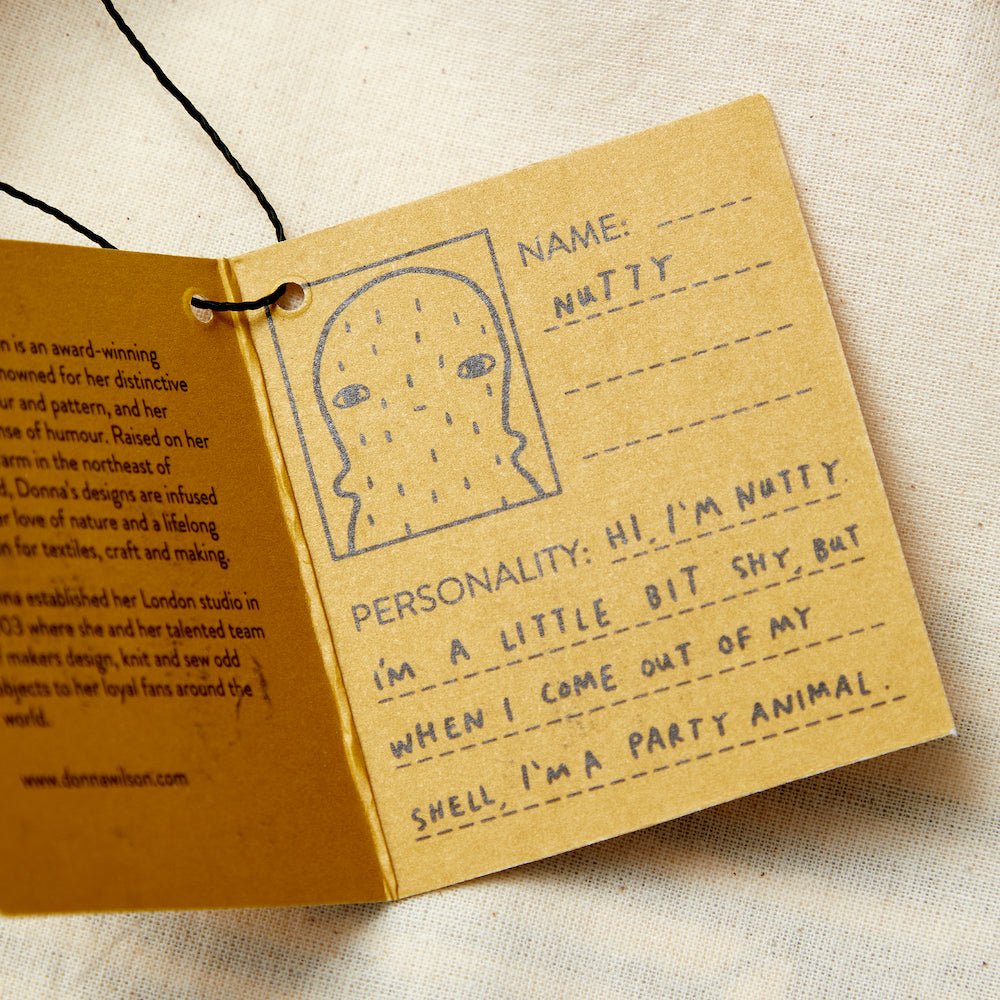 n is an award-winning
nowned for her distinctive
ur and pattern, and her
nse of humour. Raised on her
arm in the northeast of
d, Donna's designs are infused
er love of nature and a lifelong
n for textiles, craft and making.
nna established her London studio in
03 where she and her talented team
f makers design, knit and sew odd
objects to her loyal fans around the
world.
www.donnawilson.com
NAME:
NUTTY
PERSONALITY: HI, I'M NUTTY.
I'M A LITTLE BIT SHY, BUT
WHEN I COME OUT OF MY
SHELL, I'M A PARTY ANIMAL.